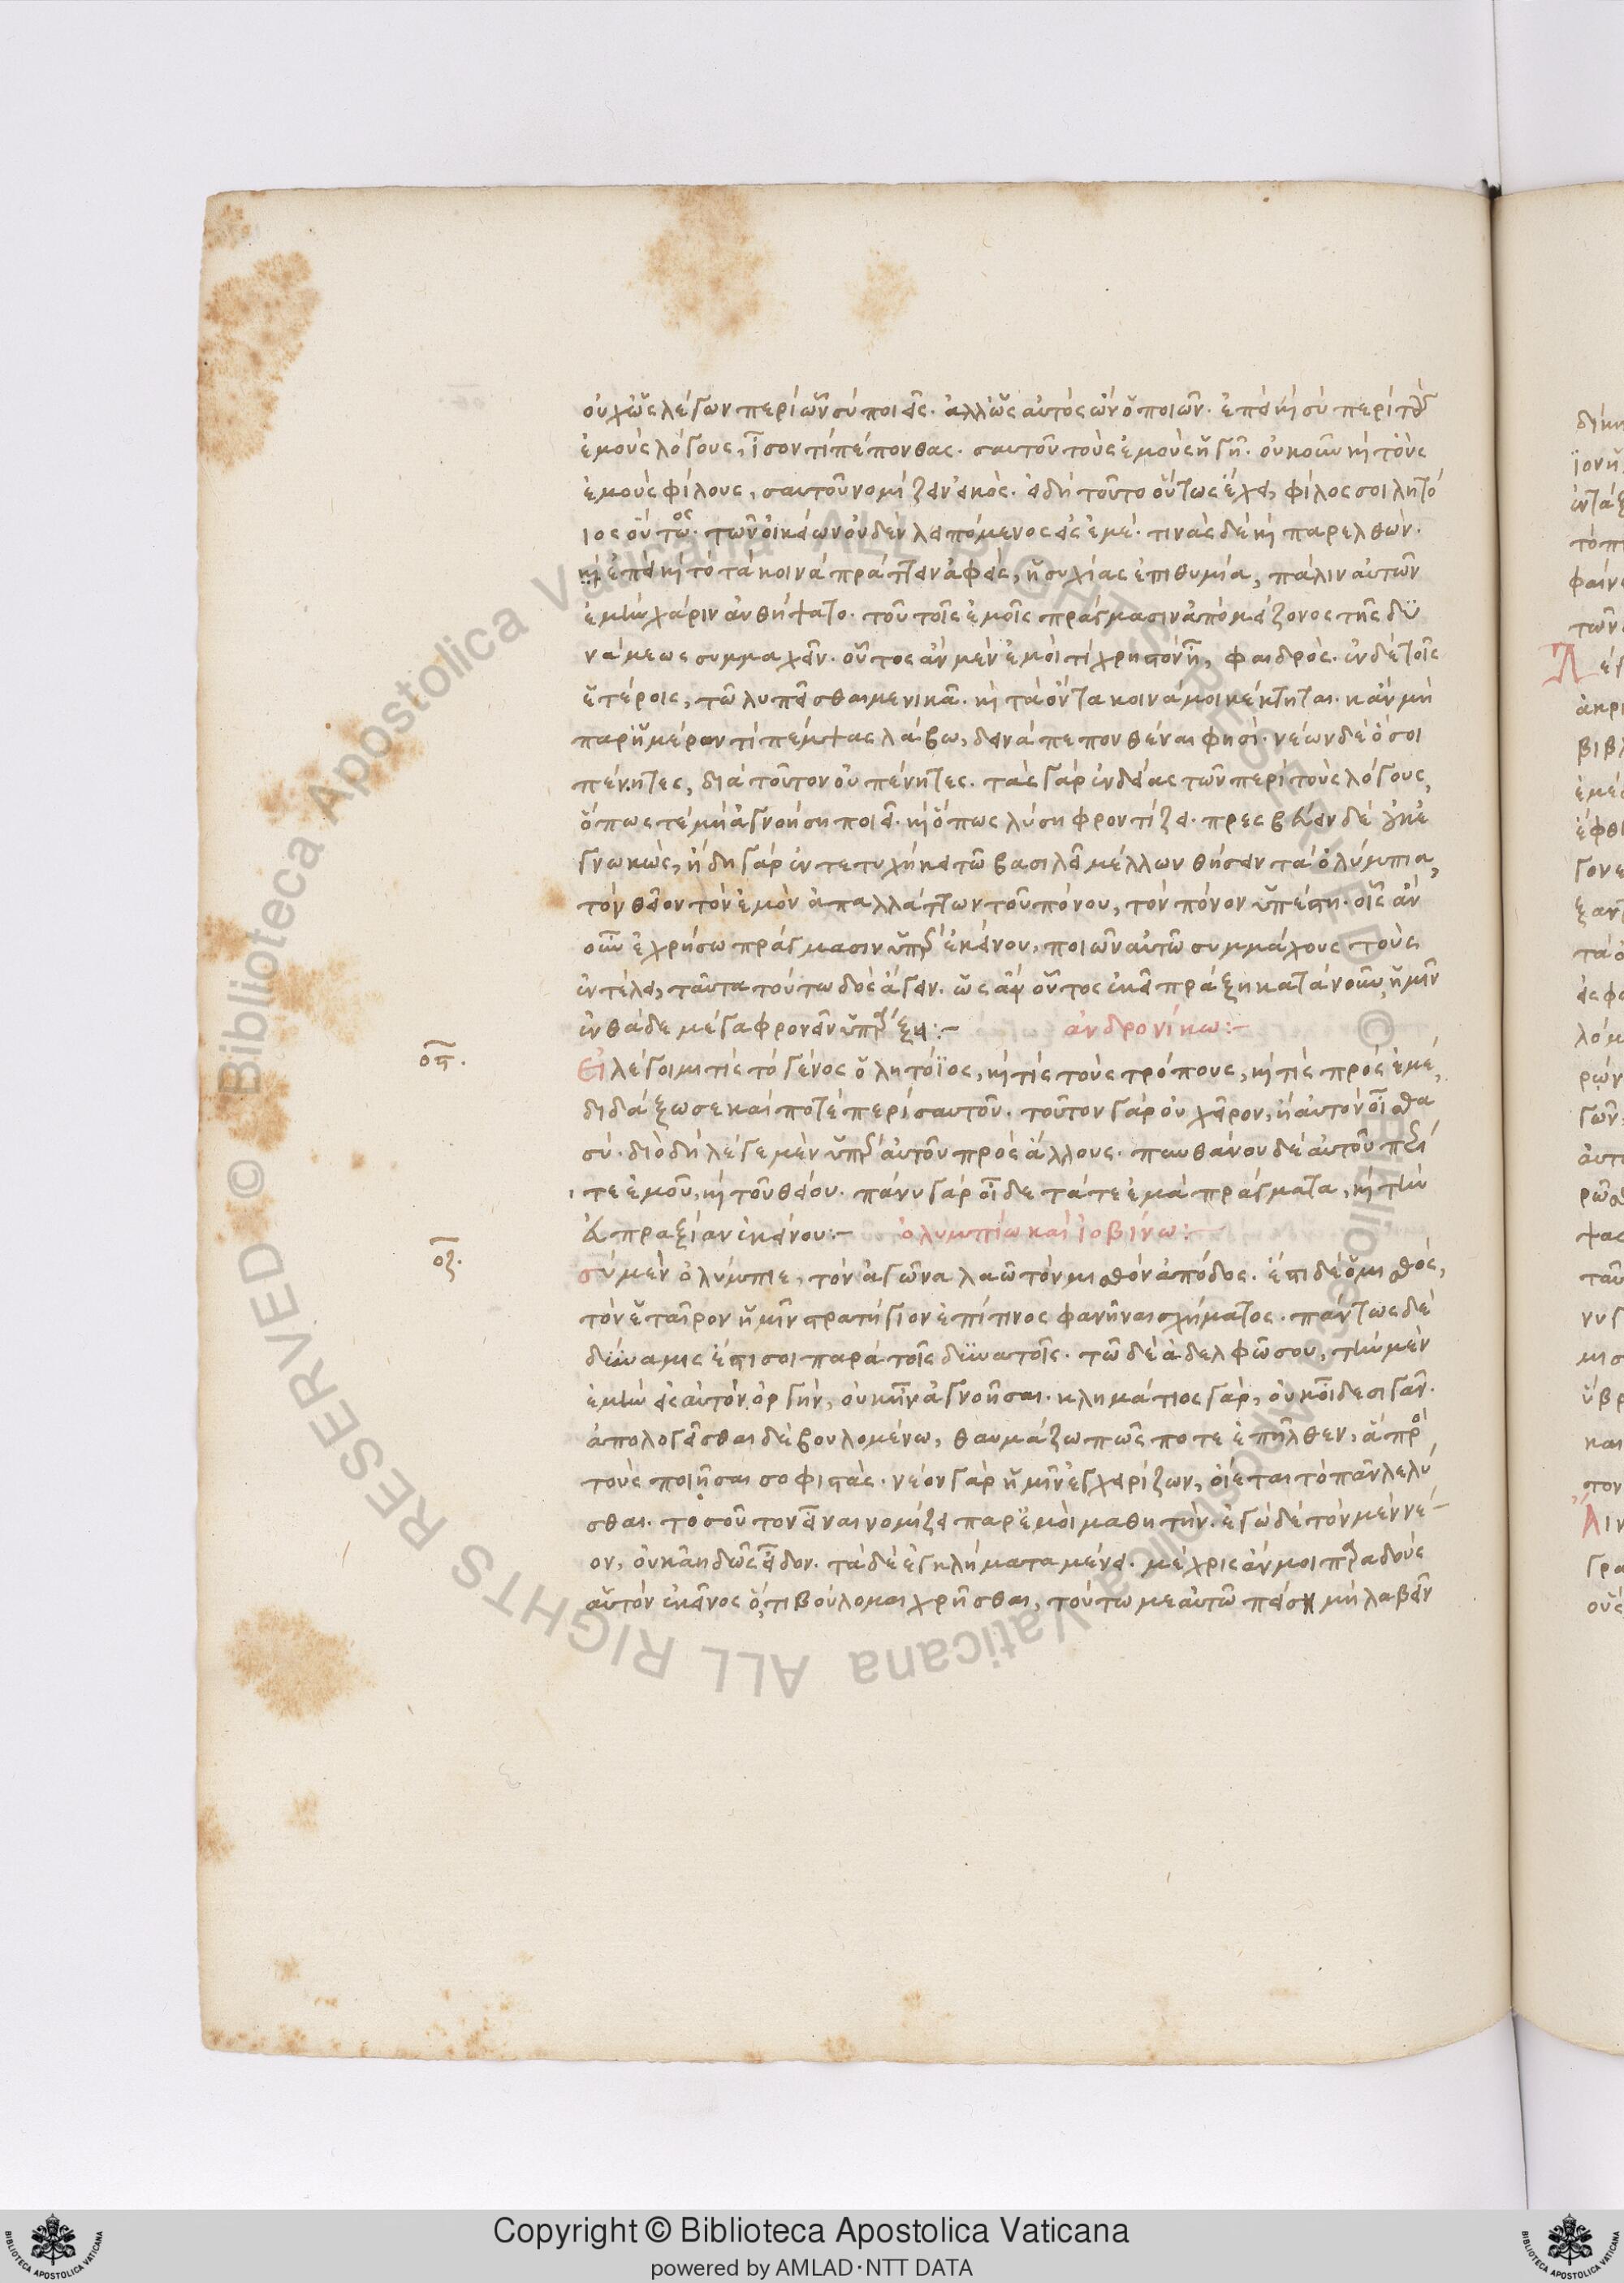 οὐχ ὡς λέγων περὶ ὧν σὺ ποιεῖς. ἀλλ' ὡς αὐτὸς ὢν ὁ ποιῶν. ἐπεὶ καὶ σὺ περὶ τοὺς
ἐμοὺς λόγους, ἴσον τι πέπονθας. σαυτοῦ τοὺς ἐμοὺς ἡγῇ. οὐκοῦν καὶ τοὺς
ἐμοὺς φίλους, σαυτοῦ νομίζειν εἰκός. εἰ δὴ τοῦτο οὕτως ἔχει, φίλος σοι λητό
ιος οὗτος. τῶν οἰκείων οὐδὲν λειπόμενος εἰς ἐμέ. τινὰς δὲ καὶ παρελθών.
καὶ ἐπεὶ καὶ τὸ τὰ κοινὰ πράττειν ἀφεὶς, ἡσυχίας ἐπιθυμίᾳ, πάλιν αὐτῶν
ἐμὴν χάριν ἀνθήψατο. τοῦ τοῖς ἐμοῖς πράγμασιν ἀπὸ μείζονος τῆς δυ
νάμεως συμμαχεῖν. οὗτος ἂν μὲν ἐμοί τι χρηστὸν ᾖ, φαιδρός. ἐν δὲ τοῖς
ἑτέροις, τῷ λυπεῖσθαί με νικᾷ. καὶ τὰ ὄντα κοινά μοι κέκτηται. κἂν μὴ
παρ' ἡμέραν τι πέμψας λάβω, δεινὰ πεπονθέναι φησί. νέων δὲ ὅσοι
πένητες, διὰ τοῦτον οὐ πένητες. τὰς γὰρ ἐνδείας τῶν περὶ τοὺς λόγους,
ὅπως τε μὴ ἀγνοήσῃ ποιεῖ. καὶ ὅπως λύσῃ φροντίζει. πρεσβεύειν δὲ οὐκ ἐ
γνωκώς, ἤδη γὰρ ἐντετυχήκει τῷ βασιλεῖ μέλλων θήσειν τὰ ὀλύμπια,
τὸν θεῖον τὸν ἐμὸν ἀπαλλάττων τοῦ πόνου, τὸν πόνον ὑπέστη. οἷς ἂν
οὖν ἐχρήσω πράγμασιν ὑπὲρ ἐκείνου, ποιῶν αὐτῷ συμμάχους τοὺς
ἐν τέλει, ταῦτα τούτῳ δὸς ἄγειν. ὡς ἀφ' ὧν οὗτος ἐκεῖ πράξῃ κατὰ νοῦν, ἡμῖν
ἐνθάδε μέγα φρονεῖν ὑπάρξῃ:–
ἀνδρονίκω:–
οϛ.
Εἰ λέγοιμι τίς τὸ γένος ὁ λητόϊος, καὶ τίς τοὺς τρόπους, καὶ τίς πρὸς ἐμέ,
διδάξω σε καί ποτε περὶ σαυτοῦ. τοῦτον γὰρ οὐ χεῖρον, ἢ αὑτὸν οἶσθα
σύ. διὸ δὴ λέγε μὲν ὑπὲρ αὐτοῦ πρὸς ἄλλους. πυνθάνου δὲ αὐτοῦ περί
τε ἐμοῦ, καὶ τοῦ θείου. πάνυ γὰρ οἶδε τά τε ἐμὰ πράγματα, καὶ τὴν
εὐπραξίαν ἐκείνου:–
ὀλυμπίω καὶ ἰοβίνω:
οζ.
σὺ μὲν ὀλύμπιε, τὸν ἀγῶνα λαβὼν τὸν μισθὸν ἀπόδος. ἔστι δὲ ὁ μισθός,
τὸν ἑταῖρον ἡμῖν στρατήγιον ἐπί τινος φανῆναι σχήματος. πάντως δὲ
δύναμις ἔστι σοι παρὰ τοῖς δυνατοῖς. τῷ δὲ ἀδελφῷ σου, τὴν μὲν
ἐμὴν εἰς αὐτὸν ὀργήν, οὐκ ἦν ἀγνοῆσαι. κλημάτιος γὰρ, οὐκ οἶδε σιγᾶν.
ἀπολογεῖσθαι δὲ βουλομένω, θαυμάζω πῶς ποτε ἐπῆλθεν, ἃ πρὸ
τοὺς ποιῆσαι σοφιστάς. νέον γὰρ ἡμῖν ἐγχειρίζων, οἴεται τὸ πᾶν λελύ
σθαι. τοσούτου τὸν εἶναι νομίζει παρ' ἐμοὶ μαθητήν. ἐγὼ δὲ τὸν μὲν νέ
ον, οὐκ ἀηδῶς εἶδον. τὰ δὲ ἐγκλήματα μένει. μέχρις ἄν μοι παραδοὺς
αὑτὸν ἐκεῖνος ὅ,τι βούλομαι χρῆσθαι, τούτω με αὐτῶ πείσῃ μὴ λαβεῖν